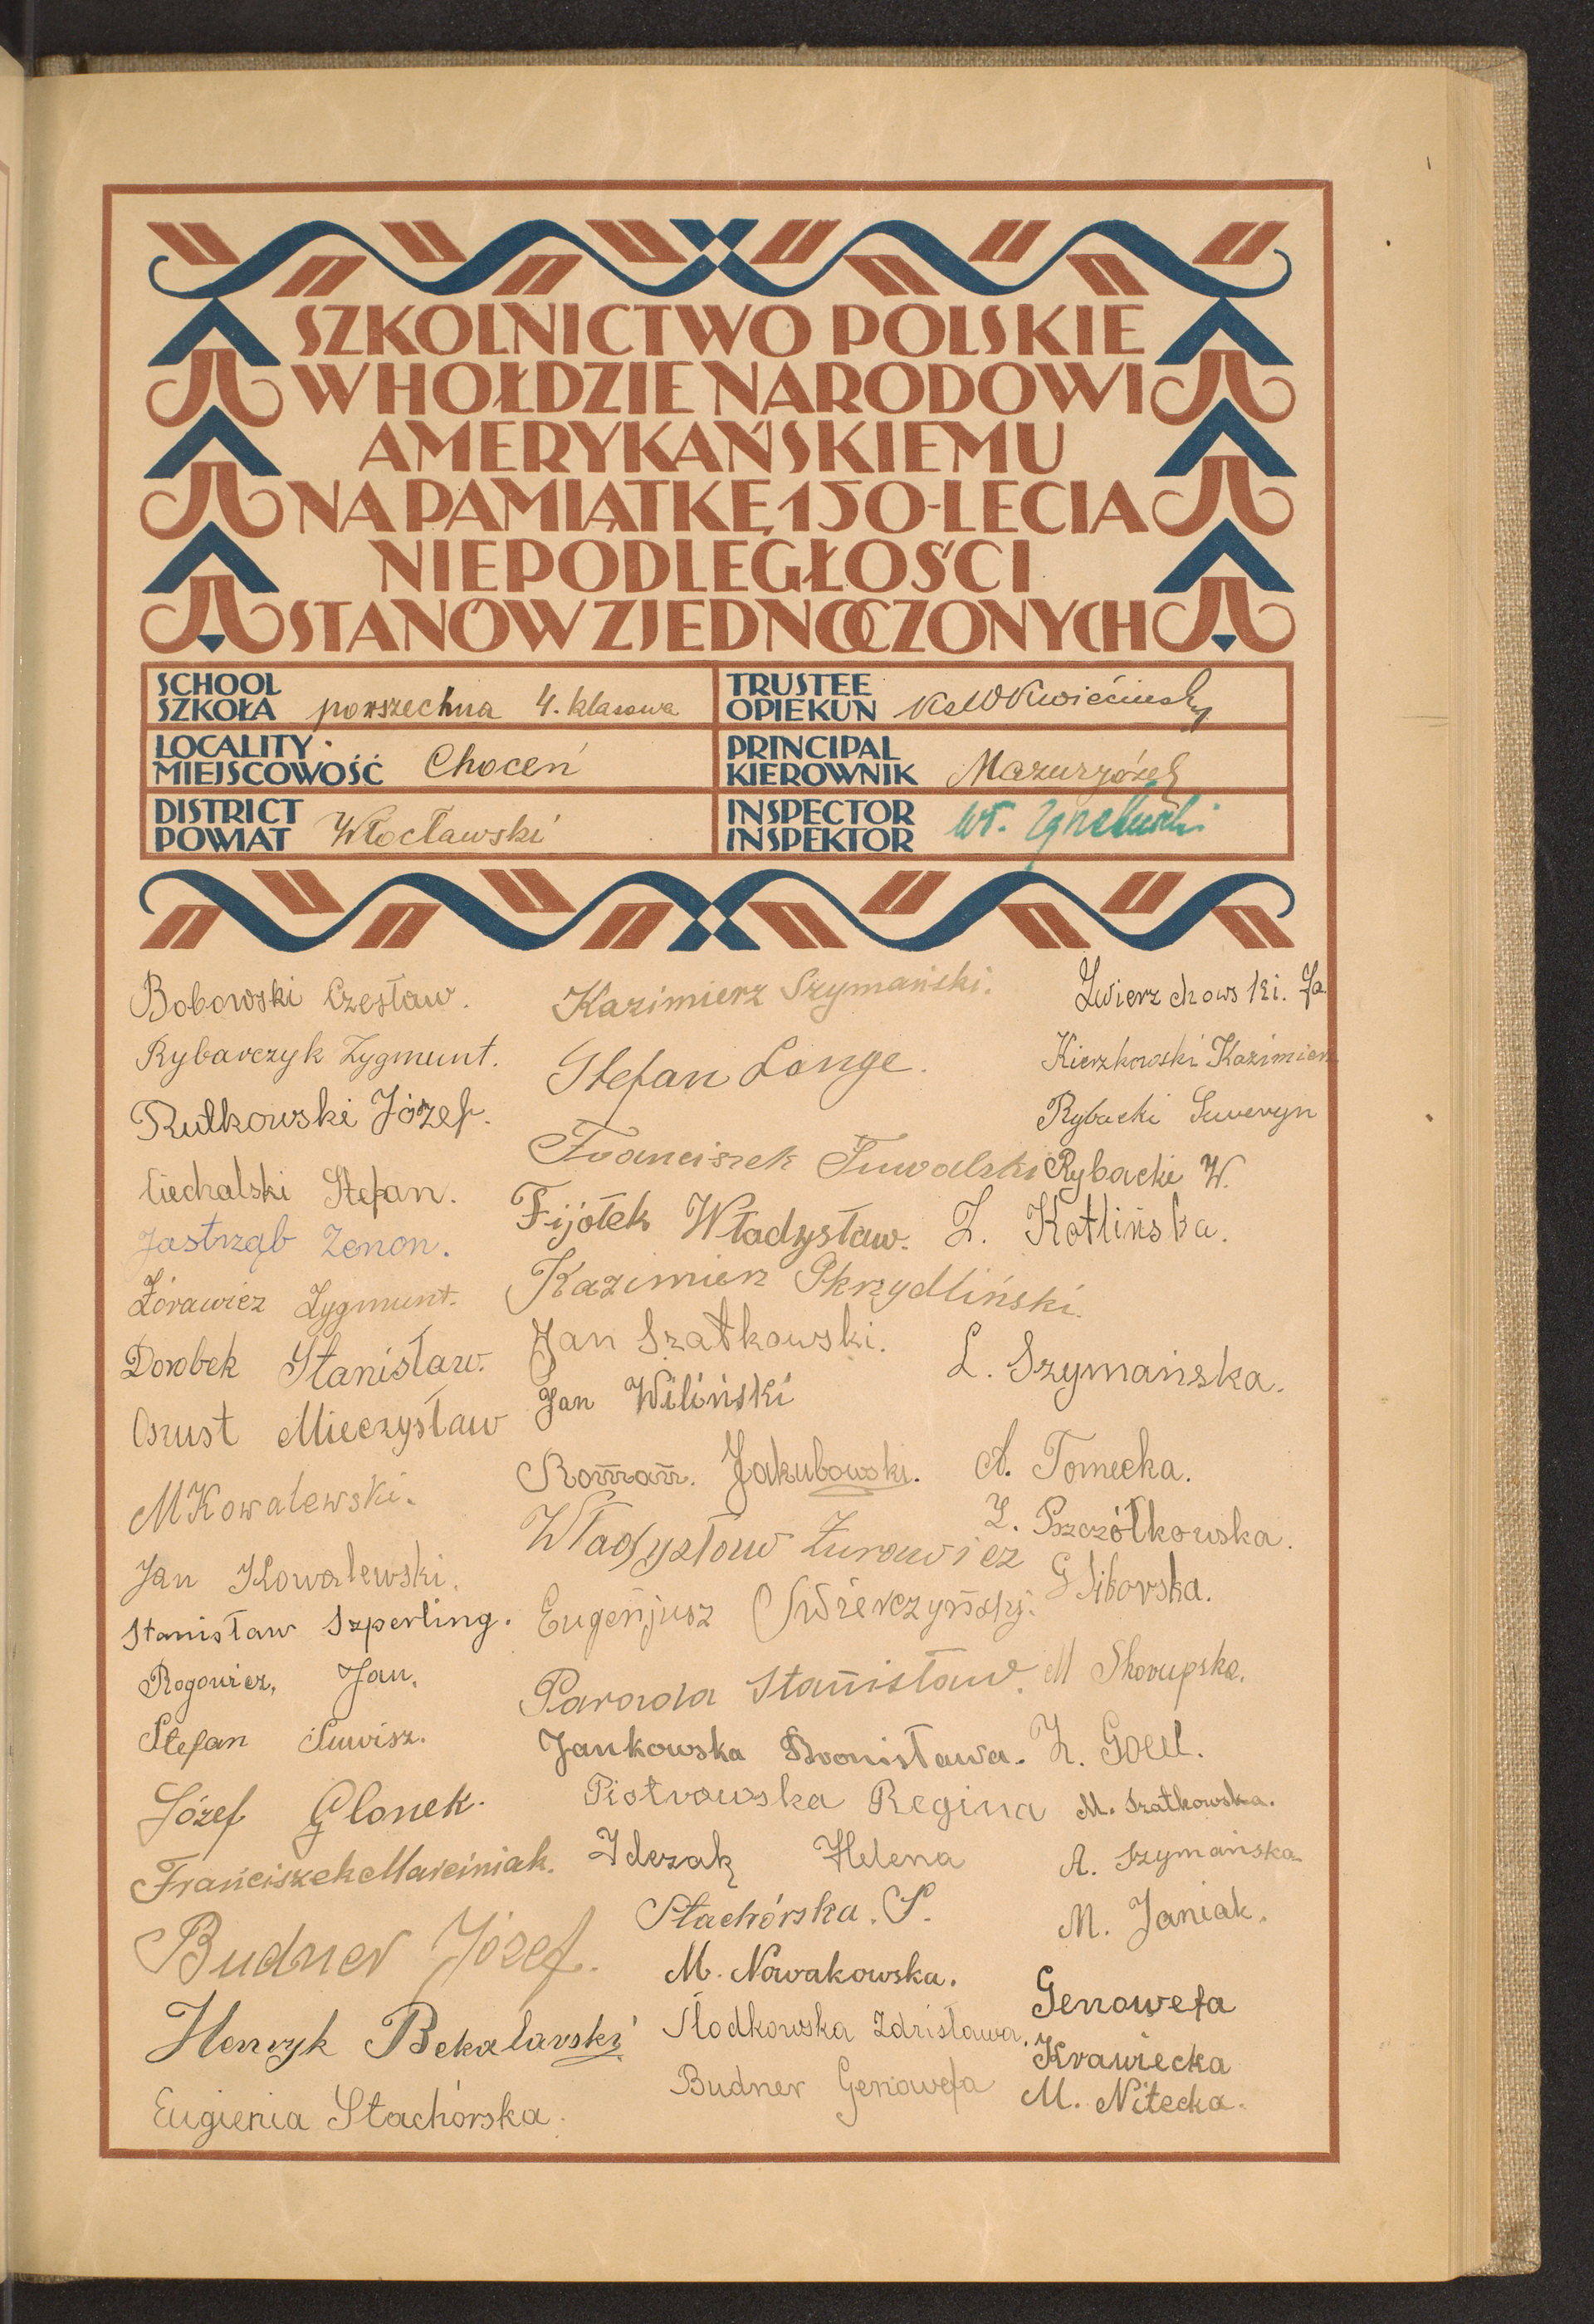 SZKOLNICTWO POLSKIE
W HOŁDZIE NARODOWI
AMERYKAŃSKIEMU
NA PAMIĄTKĘ 150-LECIA
NIEPODLEGŁOŚCI
STANÓW ZJEDNOCZONYCH
SCHOOL
SZKOŁA powszechna 4. klasowa
TRUSTEE
OPIEKUN Ks W Kwieciński
LOCALITY
MIEJSCOWOŚĆ Choceń
PRINCIPAL
KIEROWNIK Mazur Józef
DISTRICT
POWIAT Włocławski
INSPECTOR
INSPEKTOR Wł.
Bobowski Czesław.
Rybarczyk Zygmunt.
Rutkowski Józef.
Ciechalski Stefan.
Jastrząb Zenon.
Żórawicz Zygmunt.
Dorobek Stanisław.
Oszust Mieczysław
M Kowalewski.
Jan Kowalewski.
Stanisław Szperling.
Rogowicz, Jan.
Stefan Suwisz.
Józef Glonek.
Franciszek Marciniak.
Budner Józef.
Henryk Bekalarski
Eugienia Stachórska.
Kazimierz Szymański.
Stefan Lange.
Franciszek Suwalski
Fijołek Władysław.
Kazimierz Skrzydliński.
Jan Szatkowski.
Jan Wiliński
Roman. Jakubowski.
Władysław Żurawicz
Eugenjusz Świerczyński.
Parada Stanisław.
Jankowska Bronisława.
Piotrowska Regina
Idczak Helena
Stachórska. S.
M. Nowakowska.
Słodkowska Zdzisława.
Budner Genowefa
Zwierzchowski. Ja.
Kierzkowski Kazimierz
Rybacki Seweryn
Rybacki W.
Z. Kotlińska.
L. Szymańska.
A. Tomecka.
Z. Pszczółkowska.
G Sikorska.
M Skorupska.
Z. Goell.
M. Szatkowska.
A. Szymańska
M. Janiak.
Genowefa
Krawiecka
M. Nitecka.